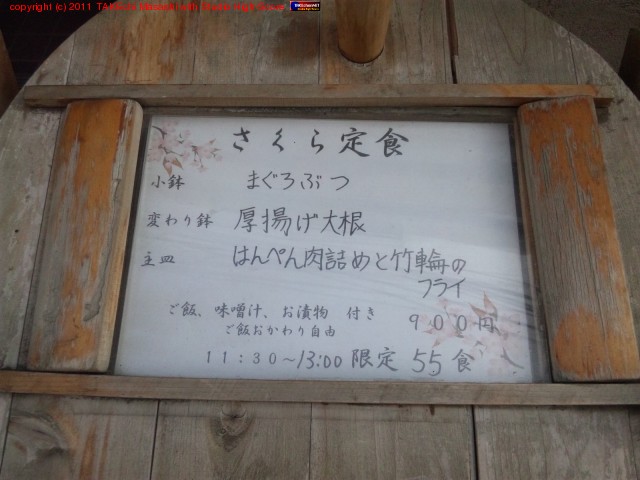 copyright (c) 2011
さくら定食
小鉢 まぐろぶつ
変わり鉢 厚揚げ大根
主皿 はんぺん肉詰めと竹輪の
フライ
ご飯、味噌汁、お漬物 付き
ご飯おかわり自由
900円
11:30～13:00 限定 55食